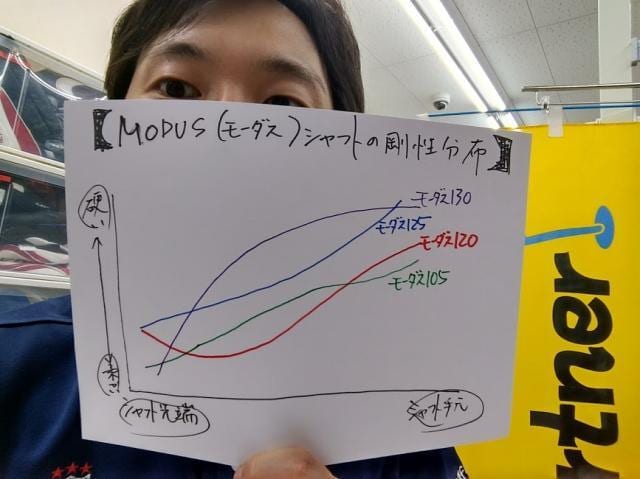 【MODUS(モーダス)シャフトの剛性分布】
硬い
モーダス130
モーダス125
モーダス120
モーダス105
柔い
シャフト先端
シャフト手元
rtner